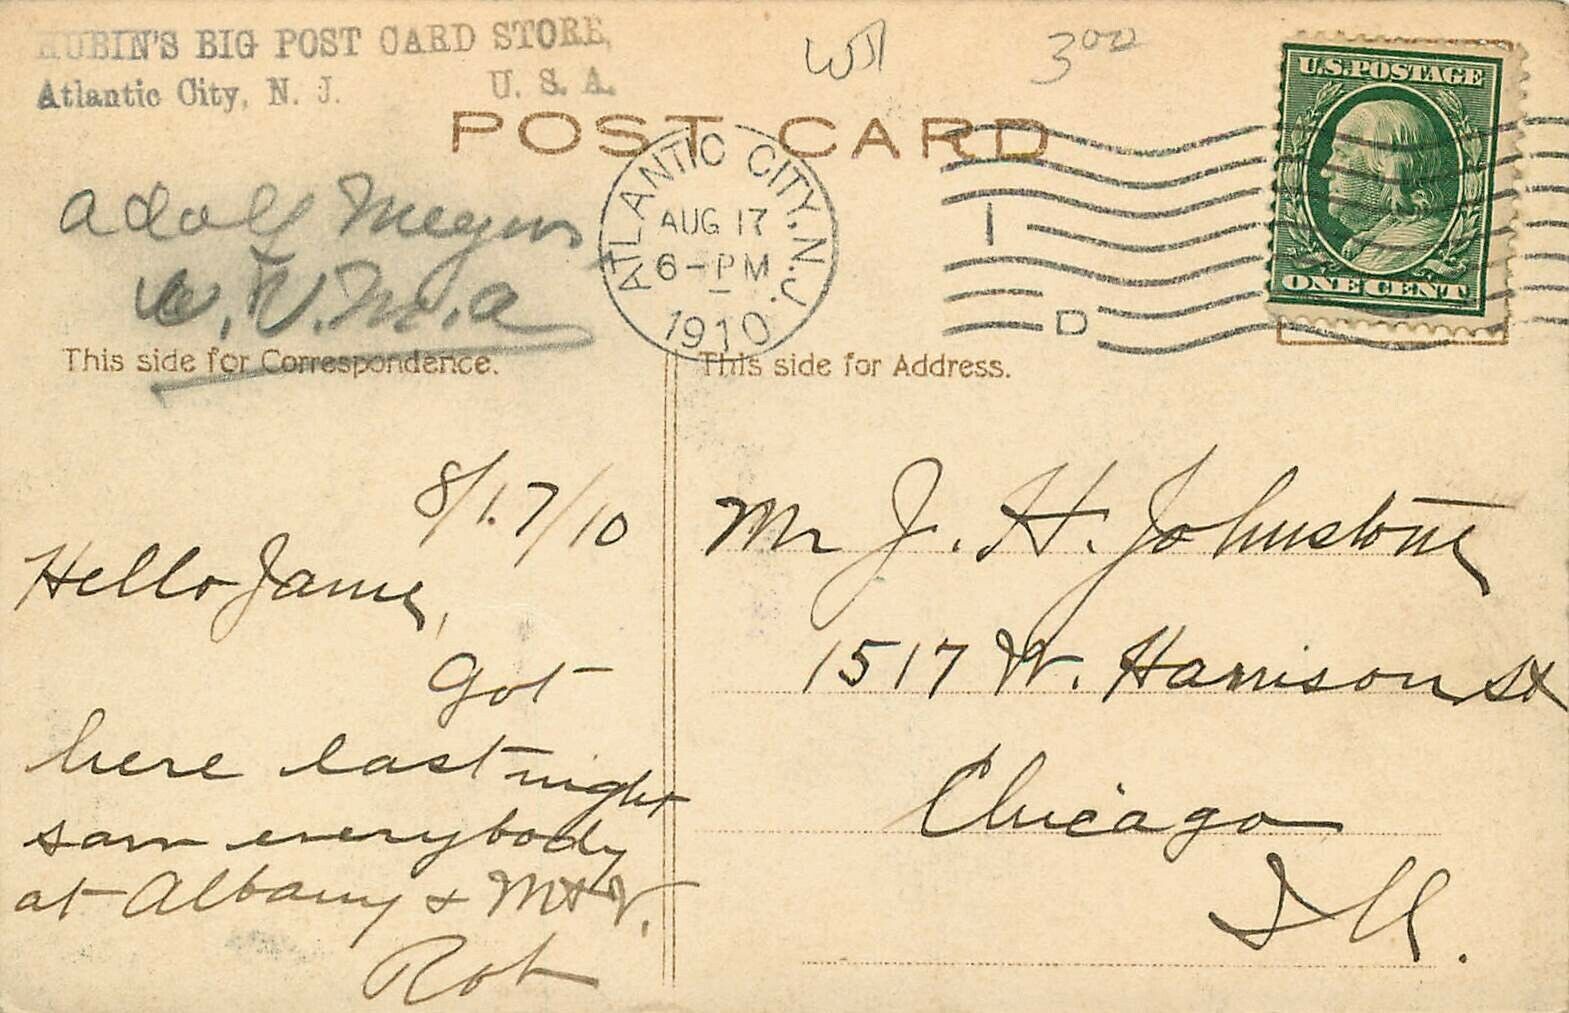 RUBIN'S BIG POST CARD STORE,
Atlantic City, N. J. U. S. A.
WJ
3 00
POST CARD
U.S. POSTAGE
ONE CENT
ATLANTIC CITY, N.J.
AUG 17
6-PM
1910
1
D
Adolf Meyers
W.V.M.A
This side for Correspondence.
This side for Address.
8/17/10
Hello Jamie,
Got
here last night
saw everybody
at Albany & Mt V.
Rob
Mr J. H. Johnstone
1517 W. Harrison St
Chicago
Ill.